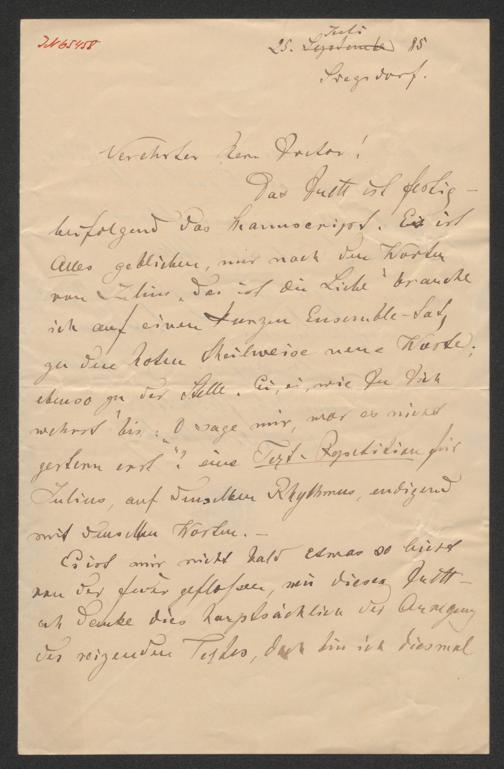 JN 65458
Juli
25. September 85
Voegsdorf.
Verehrter Herr Doctor!
Das Duett ist fertig –
beifolgend das Manuscript. Es ist
Alles geblieben, nur nach den Worten
von Julius „das ist die Liebe“ brauche
ich auf einen kurzen Ensemble-Satz
zu den Noten theilweise neue Worte;
ebenso zu der Stelle „Ei, ei, wie Du Dich
wehrst“ bis: „O sage mir, war es nicht
gestern erst“? eine Text-Repetition für
Julius, auf denselben Rhythmus, endigend
mit denselben Worten. –
Es ist mir nicht bald etwas so leicht
von der Feder geflossen, wie dieses Duett –
ich danke dies hauptsächlich der Anregung
des reizenden Textes, doch bin ich diesmal